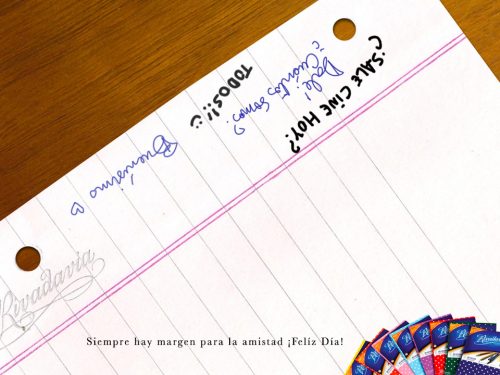 ¿SALE CINE HOY?
Dale!
¿Cuántos somos?
TODOS!!
Buenísimo
Rivadavia
Siempre hay margen para la amistad ¡Feliz Día!
Rivadavia